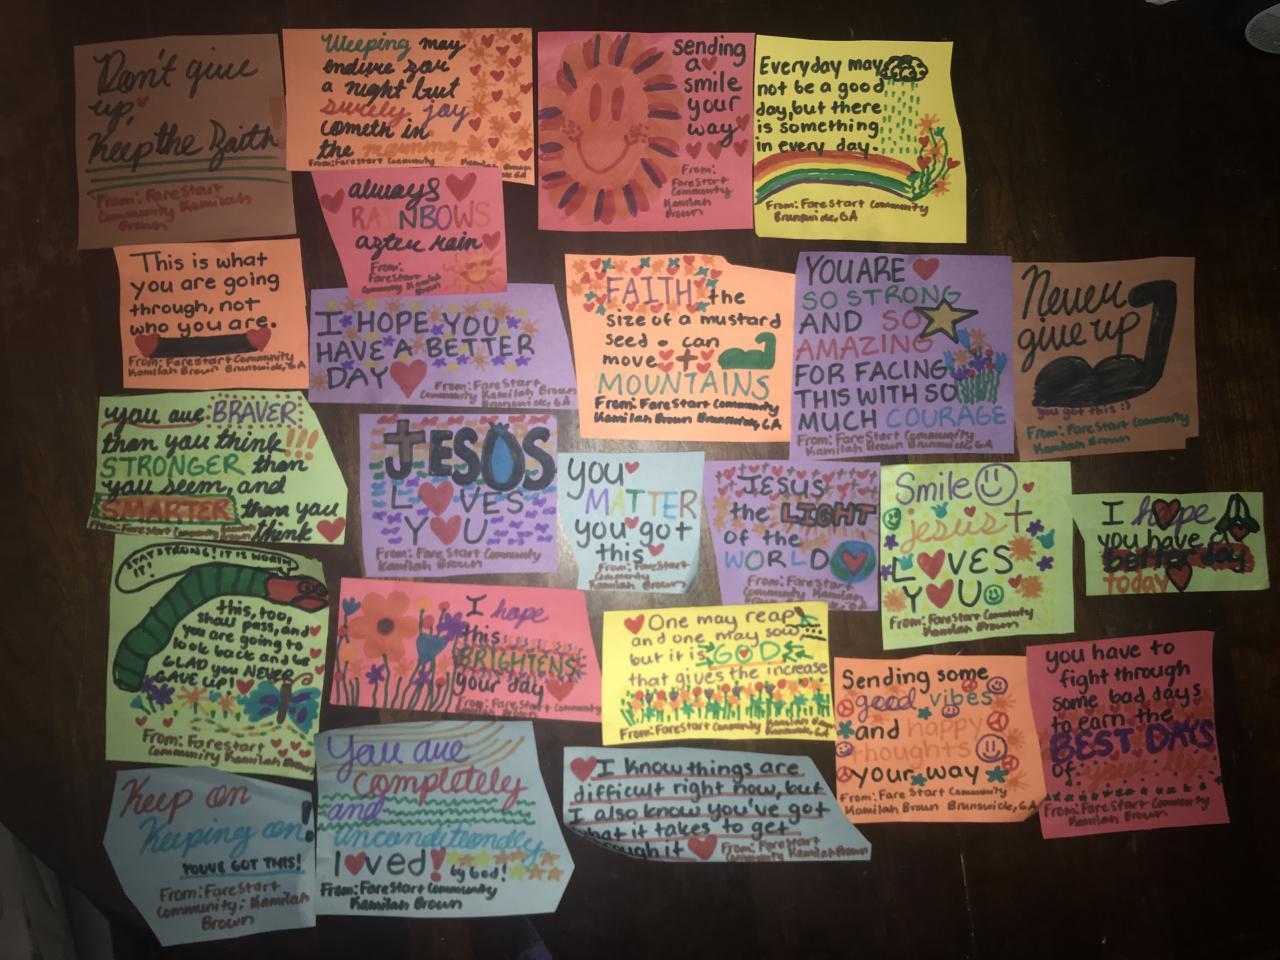 Don't give
up,
Keep the Faith
From: FareStart
Community Kamilah
Brown
Weeping may
endure for
a night but
surely joy
cometh in
the morning
From: Farestart Community Kamilah Brown
GA
sending
a
smile
your
way
From:
FareStart
Community
Kamilah
Brown
Everyday may
not be a good
day, but there
is something
in every day.
From: FareStart Community
Brunswick, GA
always
RAINBOWS
after rain
From:
FareStart
Community Kamilah
Brown
This is what
you are going
through, not
who you are.
From: FareStart Community
Kamilah Brown Brunswick, GA
I HOPE YOU
HAVE A BETTER
DAY
From: FareStart
Community Kamilah Brown
Brunswick, GA
FAITH the
size of a mustard
seed . can
move
MOUNTAINS
From: FareStart Community
Kamilah Brown Brunswick, GA
YOU ARE
SO STRONG
AND SO
AMAZING
FOR FACING
THIS WITH SO
MUCH COURAGE
From: FareStart Community
Kamilah Brown Brunswick, GA
Never
give up
you got this :)
From: FareStart Community
Kamilah Brown
you are BRAVER
than you think!!!
STRONGER than
you seem, and
SMARTER than you
think
From: FareStart Community
JESUS
LOVES
YOU
From: FareStart Community
Kamilah Brown
you
MATTER
you got
this
From: FareStart
Community
Kamilah
Brown
JESUS
the LIGHT
of the
WORLD
From: FareStart
Community
Kamilah Brown
Smile
jesus
LOVES
YOU
From: FareStart Community
Kamilah Brown
I hope
you have a
better day
today
STAY STRONG! IT IS WORTH
IT!
this, too,
shall pass, and
you are going to
look back and be
GLAD you NEVER
GAVE UP!
From: Farestart
Community Kamilah Brown
I hope
this
BRIGHTENS
your day
From: FareStart Community
One may reap
and one may sow
but it is GOD
that gives the increase
From: FareStart Community Kamilah Brown
Sending some
good vibes
and happy
thoughts
your way
From: FareStart Community
Kamilah Brown Brunswick, GA
you have to
fight through
some bad days
to earn the
BEST DAYS
of your life
From: FareStart Community
Kamilah Brown
Keep on
Keeping on!
YOUVE GOT THIS!
From: FareStart
Community: Kamilah
Brown
You are
completely
and
unconditionally
loved! by God!
From: FareStart Community
Kamilah Brown
I know things are
difficult right now, but
I also know you've got
what it takes to get
through it
From: FareStart
Community Kamilah Brown